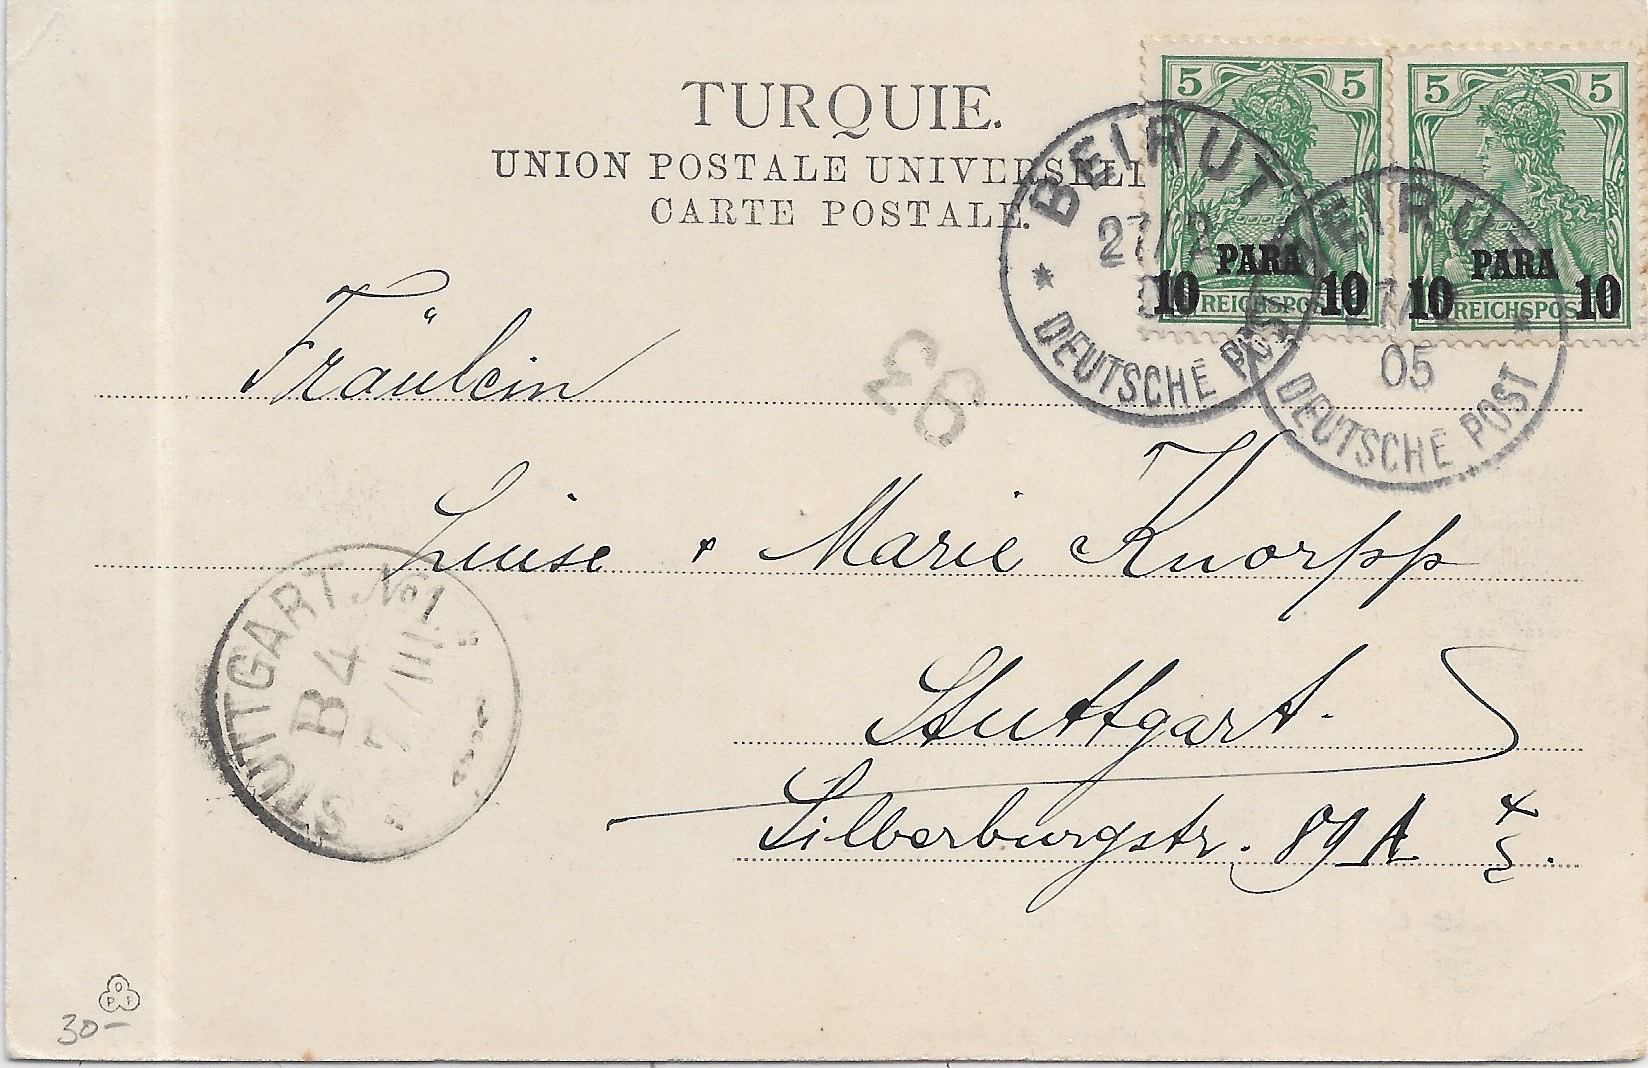 TURQUIE.
UNION POSTALE UNIVERSELLE
CARTE POSTALE.
5 5
PARA
10 10
REICHSPOST
5 5
PARA
10 10
REICHSPOST
BEIRUT
27/2
DEUTSCHE POST
BEIRUT
27/2
05
DEUTSCHE POST
Fräulein
Luise & Marie Knorpp
Stuttgart.
Silberburgstr. 89 A
STUTTGART No 1
B 4
7/III
O
P F
30-